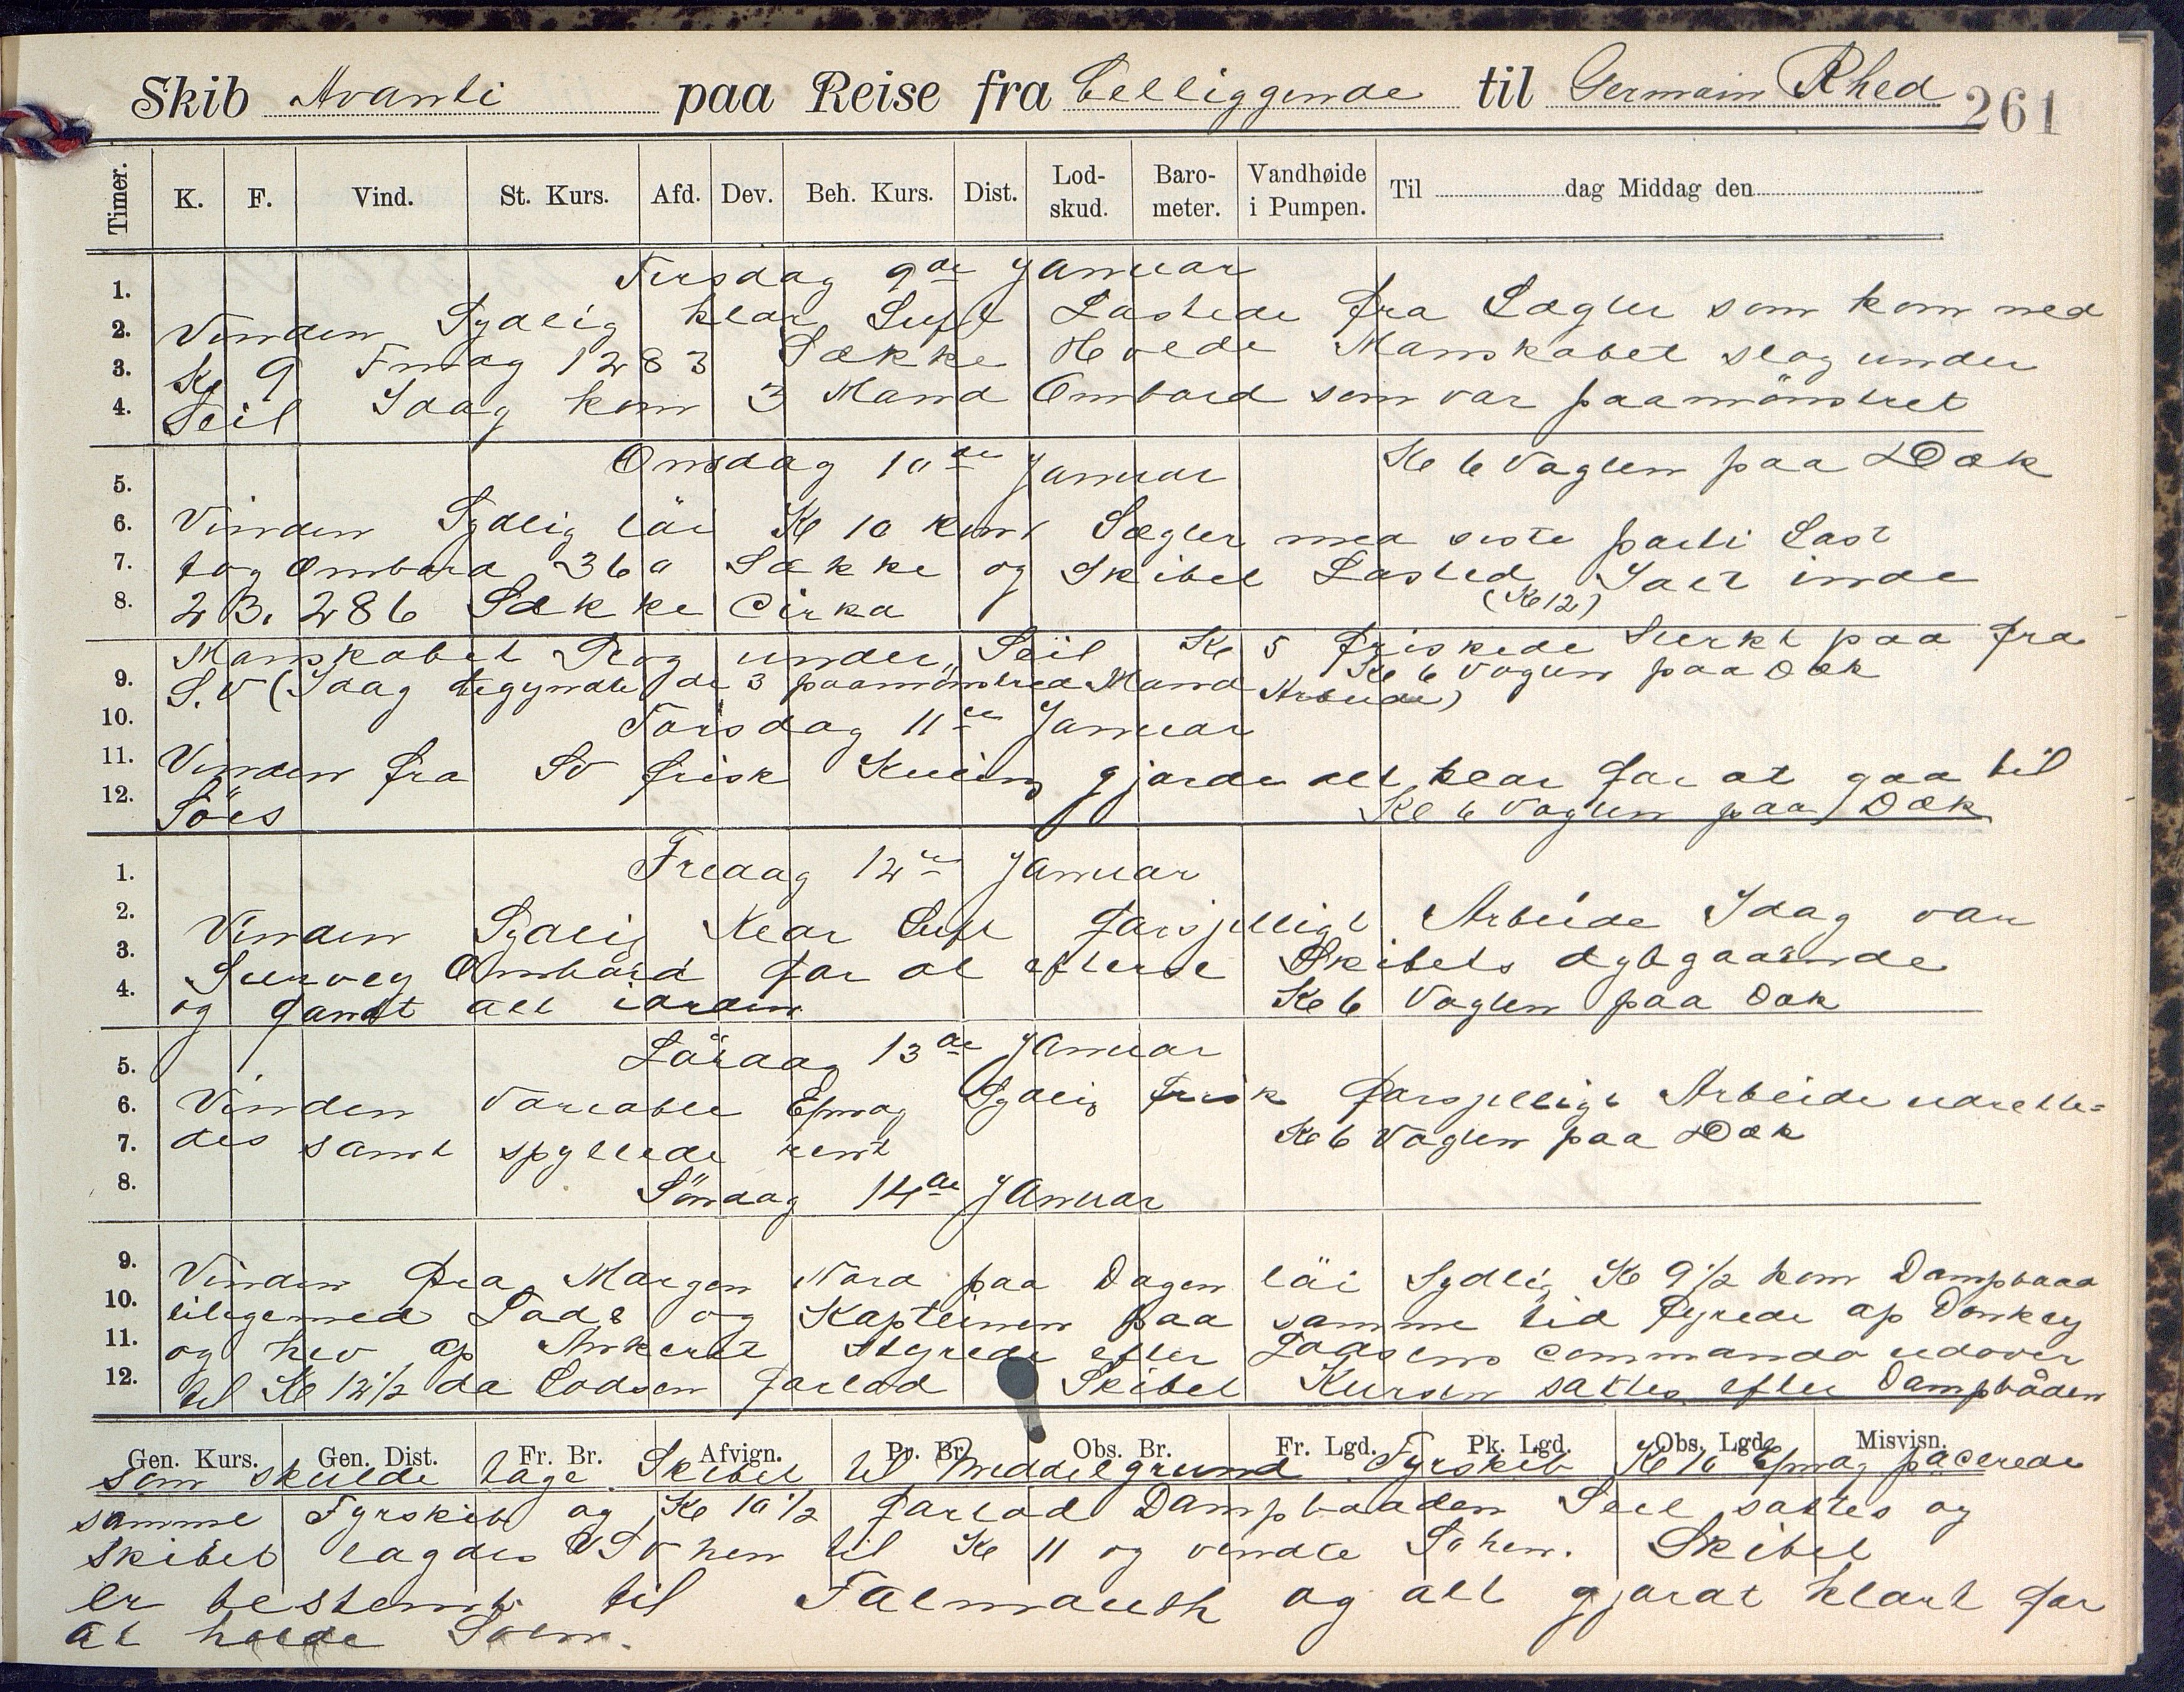 Skib Avanti paa Reise fra Telliggende til Germain Rhed 261
Timer. K. F. Vind. St. Kurs. Afd. Dev. Beh. Kurs. Dist. Lod-skud. Baro-meter. Vandhøide i Pumpen. Til dag Middag den
Tirsdag 9de Januar
1.
2. Vinden Sydlig klar Luft Lastede fra Lægter som kom ned
3. Kl 9 Fmdag 1283 Sække Hvede Manskabet slog under
4. Seil Idag kom 3 Mand Ombord som var paamönstret
Onsdag 10de Januar Kl 6 Vagten paa Dæk
5.
6. Vinden Sydlig löi Kl 10 kom Lægter med siste parti Last
7. tog Ombord 360 Sække og Skibet Lasted Ialt inde
8. 23.286 Sække Cirka (Kl 12)
Manskabet Slog under Seil Kl 5 friskede sterkt paa fra
9. S.V (Idag begyndte de 3 paamönstred Mand Arbeide) Kl 6 Vagten paa Dæk
10. Torsdag 11te Januar
11. Vinden fra SV frisk Kuling gjorde alt klar for at gaa til
12. Söes Kl 6 Vagten paa Dæk
1. Fredag 12te Januar
2. Vinden Sydlig Klar Luft forsjelligt Arbeide Idag var
3. Survey Ombord for at efterse Skibets dybgaaende
4. og fandt alt iorden Kl 6 Vagten paa Dæk
5. Lördag 13de Januar
6. Vinden Variable Efmdag Sydlig frisk forsjelligt Arbeide udrette=
7. des samt spyllede rent Kl 6 Vagten paa Dæk
8. Söndag 14de Januar
9. Vinden fra Morgen Nord paa Dagen löi Sydlig Kl 9 1/2 kom Dampbaad
10. tilligemed Lods og Kapteinen paa samme tid fyrede op Donkey
11. og hev op Ankeret Styrede efter Lodsens commando udover
12. til Kl 12 1/2 da Lodsen forlod Skibet Kursen sattes efter Dampbåden
Gen. Kurs. Gen. Dist. Fr. Br. Afvign. Pr. Br. Obs. Br. Fr. Lgd. Pk. Lgd. Obs. Lgd. Misvisn.
som skulde tage Skibet til Meddelgrund Fyrskib Kl 10 Efmdag pacerede
samme Fyrskib og Kl 10 1/2 forlod Dampbaaden Seil sattes og
skibet lagdes hen til Kl 11 og vendte hen. Skibet
er bestemt til Falmouth og alt gjordt klart for
at holde Söen.